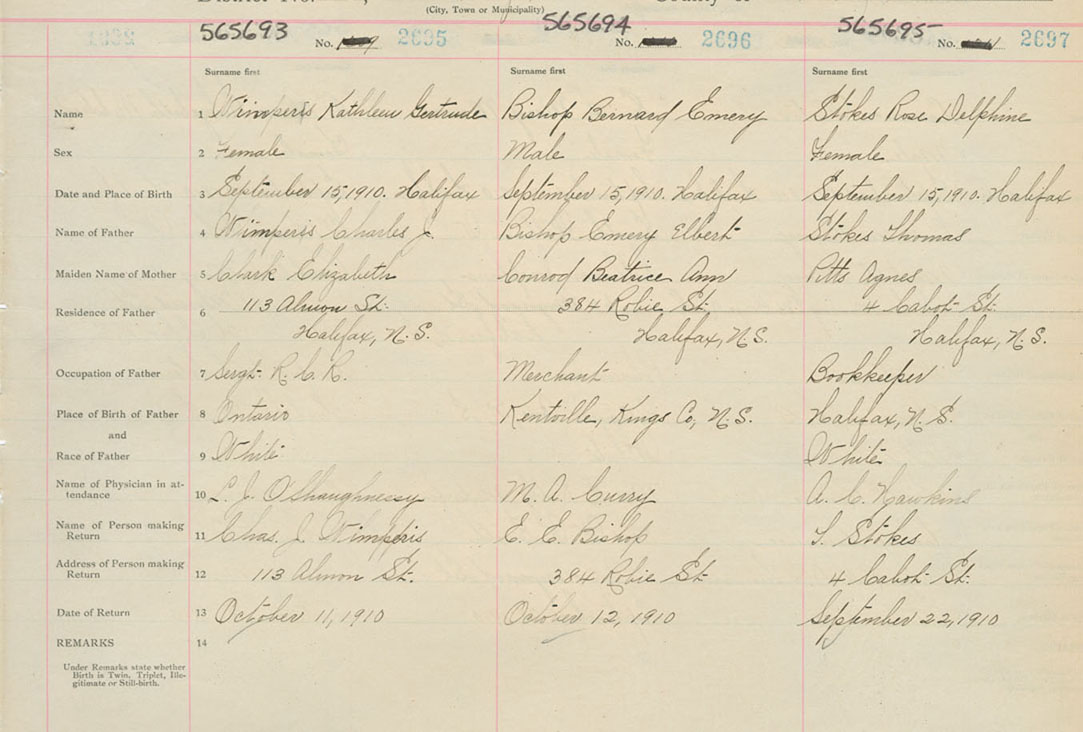 (City, Town or Municipality)
565693 No. 2695 565694 No. 2696 565695 No. 2697
Surname first Surname first Surname first
Name 1 Wimperis Kathleen Gertrude Bishop Bernard Emery Stokes Rose Delphine
Sex 2 Female Male Female
Date and Place of Birth 3 September 15, 1910. Halifax September 15, 1910. Halifax September 15, 1910. Halifax
Name of Father 4 Wimperis Charles J. Bishop Emery Elbert Stokes Thomas
Maiden Name of Mother 5 Clark Elizabeth Conrod Beatrice Ann Pitts Agnes
Residence of Father 6 113 Almon St. 384 Robie St. 4 Cabot St.
Halifax, N.S. Halifax, N.S. Halifax, N.S.
Occupation of Father 7 Sergt. R.C.R. Merchant Bookkeeper
Place of Birth of Father 8 Ontario Kentville, Kings Co, N.S. Halifax, N.S.
and
Race of Father 9 White White
Name of Physician in at-
tendance 10 O'Shaughnessy M. A. Curry A. C. Hawkins
Name of Person making
Return 11 Chas. J. Wimperis E. E. Bishop T. Stokes
Address of Person making
Return 12 113 Almon St. 384 Robie St. 4 Cabot St.
Date of Return 13 October 11, 1910 October 12, 1910 September 22, 1910
REMARKS 14
Under Remarks state whether
Birth is Twin, Triplet, Ille-
gitimate or Still-birth.